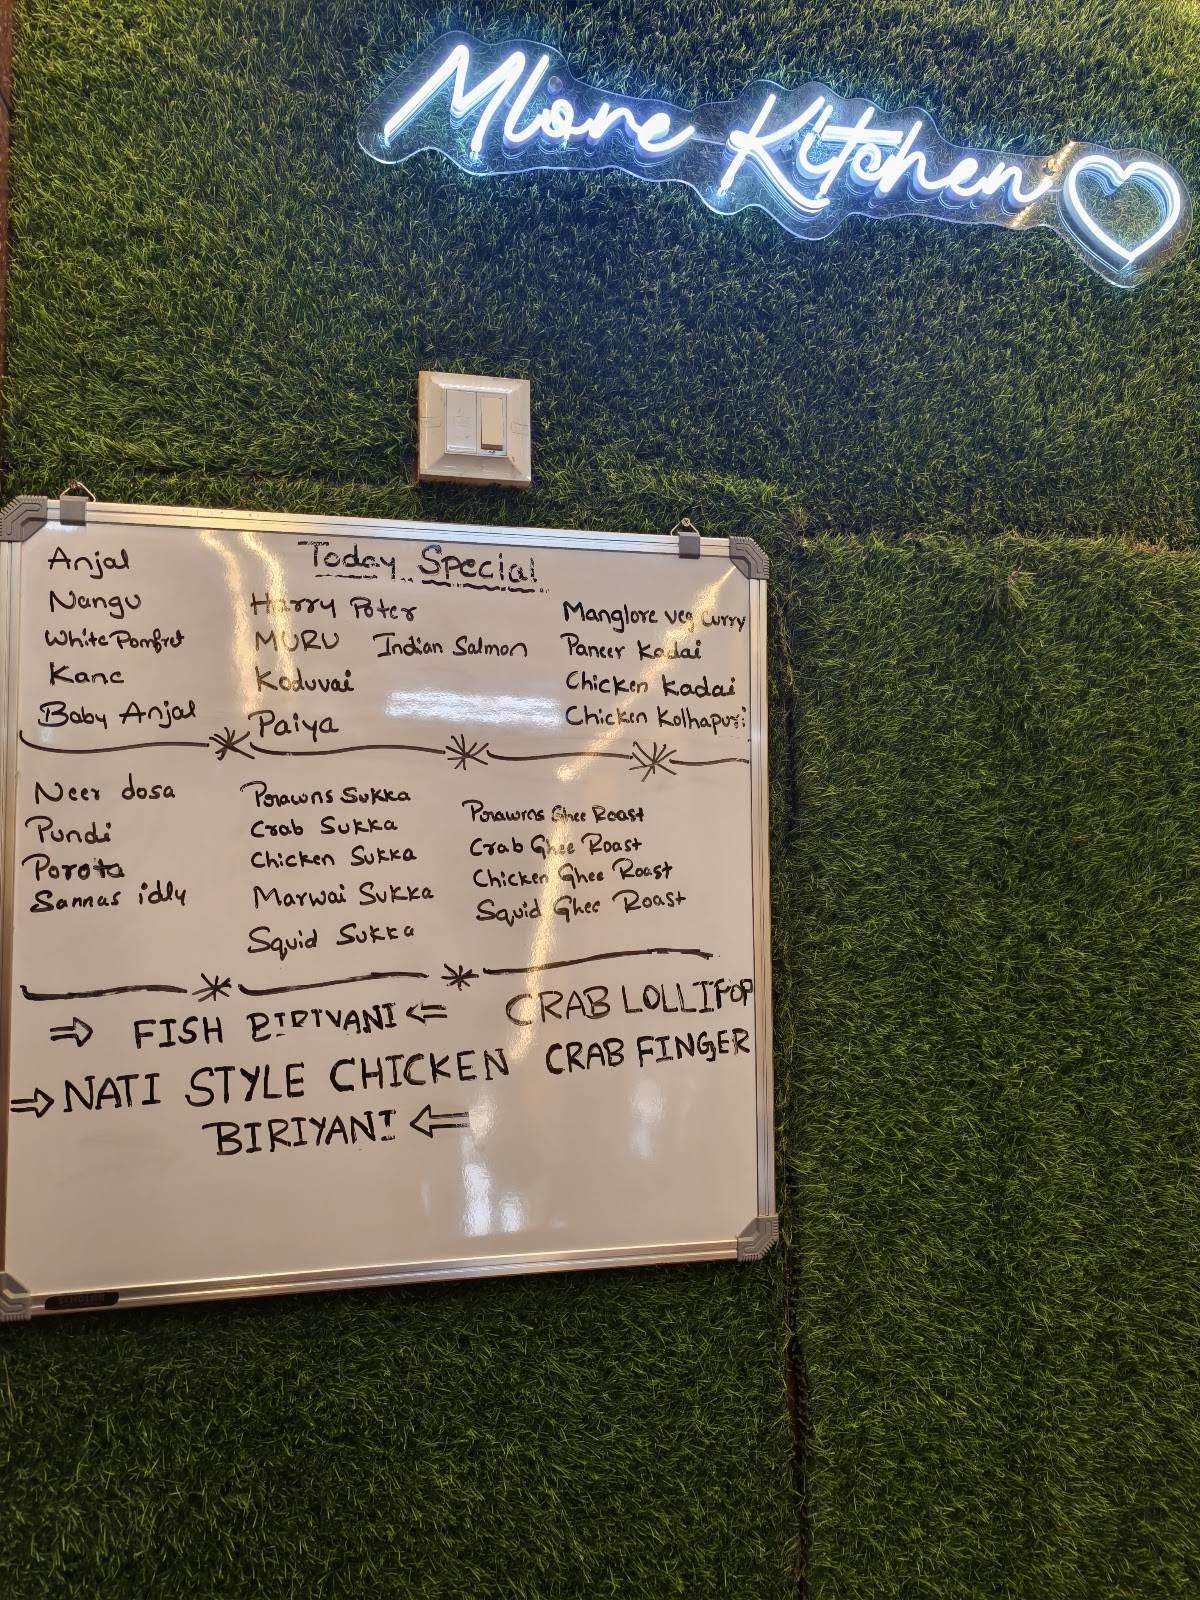 Mlore Kitchen
Today Special
Anjal
Nangu
White Pomfret
Kane
Baby Anjal
Harry Poter
MURU Indian Salmon
Koduvai
Paiya
Manglore veg Curry
Paneer Kadai
Chicken Kadai
Chicken Kolhapuri
Neer dosa
Pundi
Porota
Sannas idly
Prawns Sukka
Crab Sukka
Chicken Sukka
Marwai Sukka
Squid Sukka
Prawns Ghee Roast
Crab Ghee Roast
Chicken Ghee Roast
Squid Ghee Roast
⇒ FISH BIRIYANI ⇐
⇒ NATI STYLE CHICKEN
BIRIYANI ⇐
CRAB LOLLIPOP
CRAB FINGER